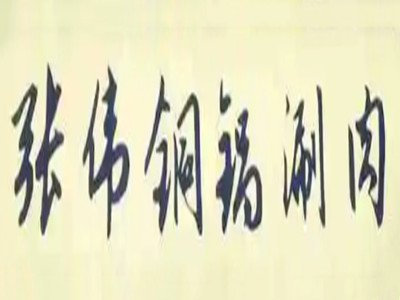 张伟铜锅涮肉